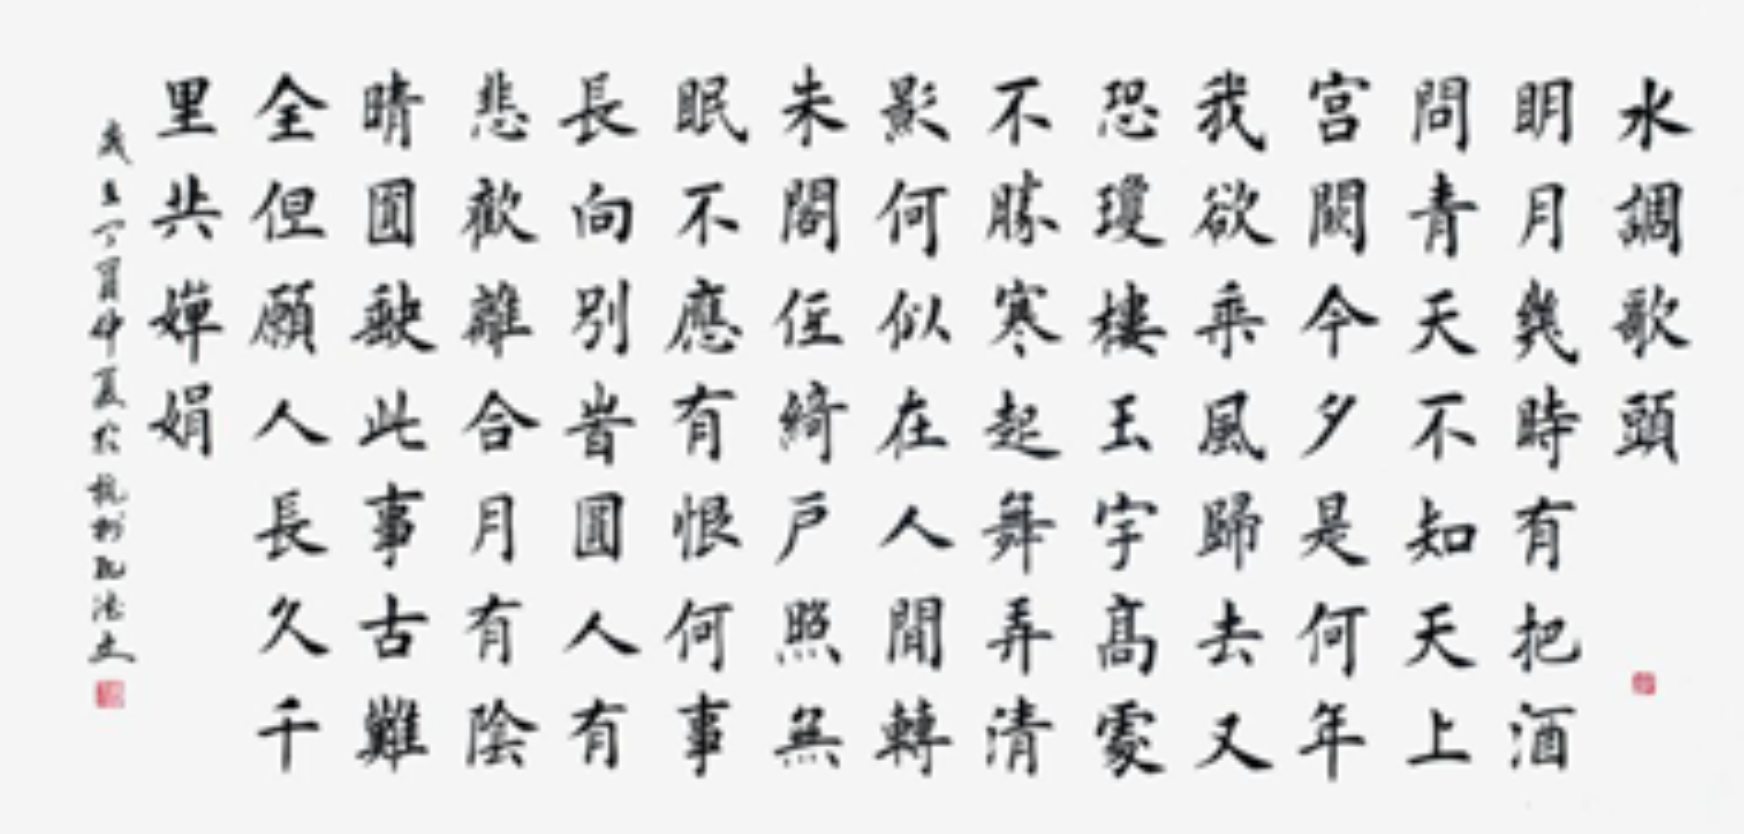 水調歌頭
明月幾時有把酒
問青天不知天上
宫闕今夕是何年
我欲乘風歸去又
恐瓊樓玉宇髙處
不勝寒起舞弄清
影何似在人間轉
朱閣低綺户照無
眠不應有恨何事
長向别旹圓人有
悲歡離合月有陰
晴圓缺此事古難
全但願人長久千
里共嬋娟
丁酉仲夏於杭州